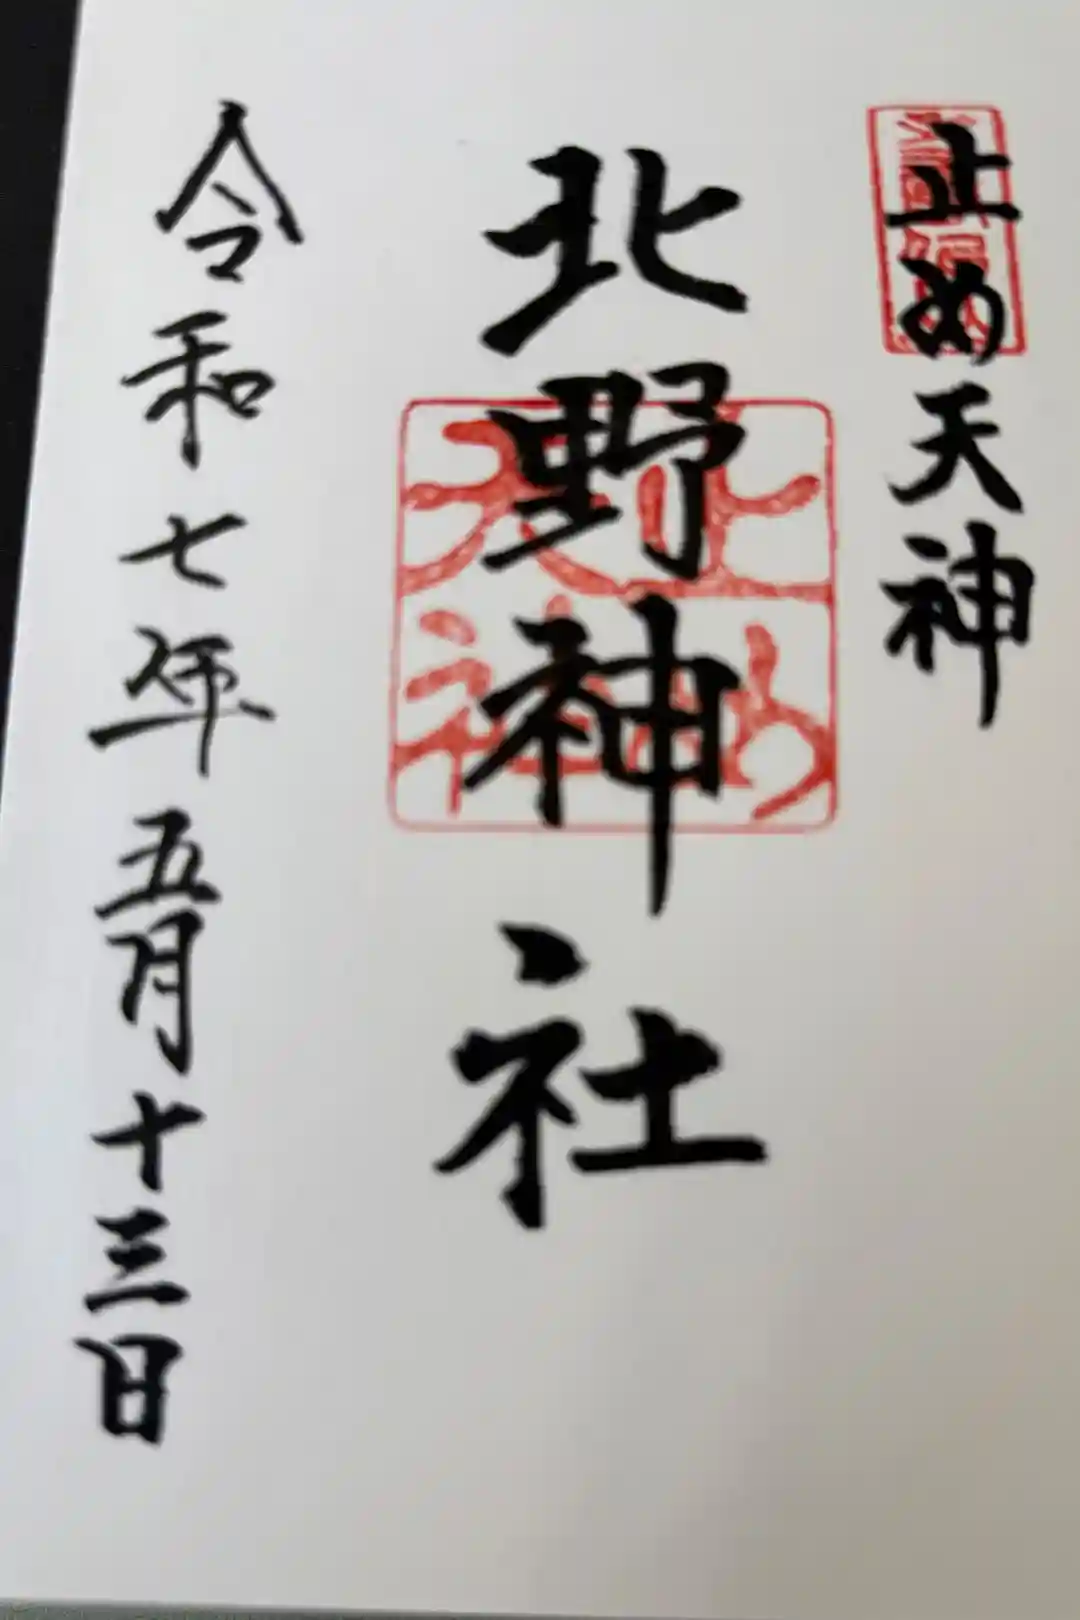 止め天神
北野神社
令和七年五月十三日